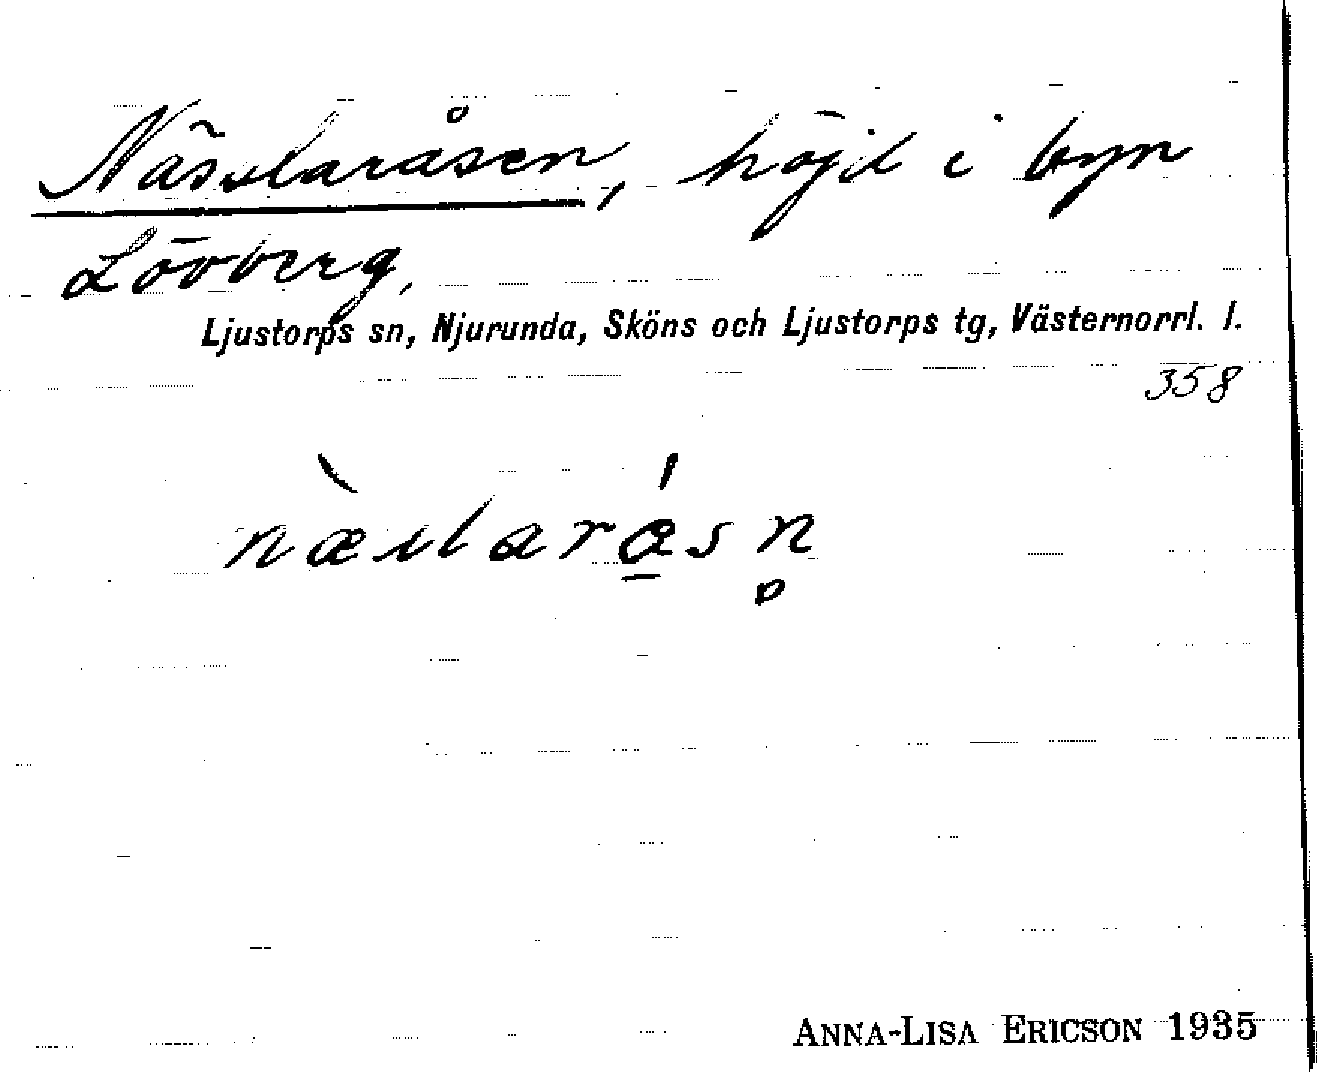 Nässlaråsen, höjd i byn
Lövberg.
Ljustorps sn, Njurunda, Sköns och Ljustorps tg, Västernorrl. l.
358
ANNA-LISA ERICSON 1935